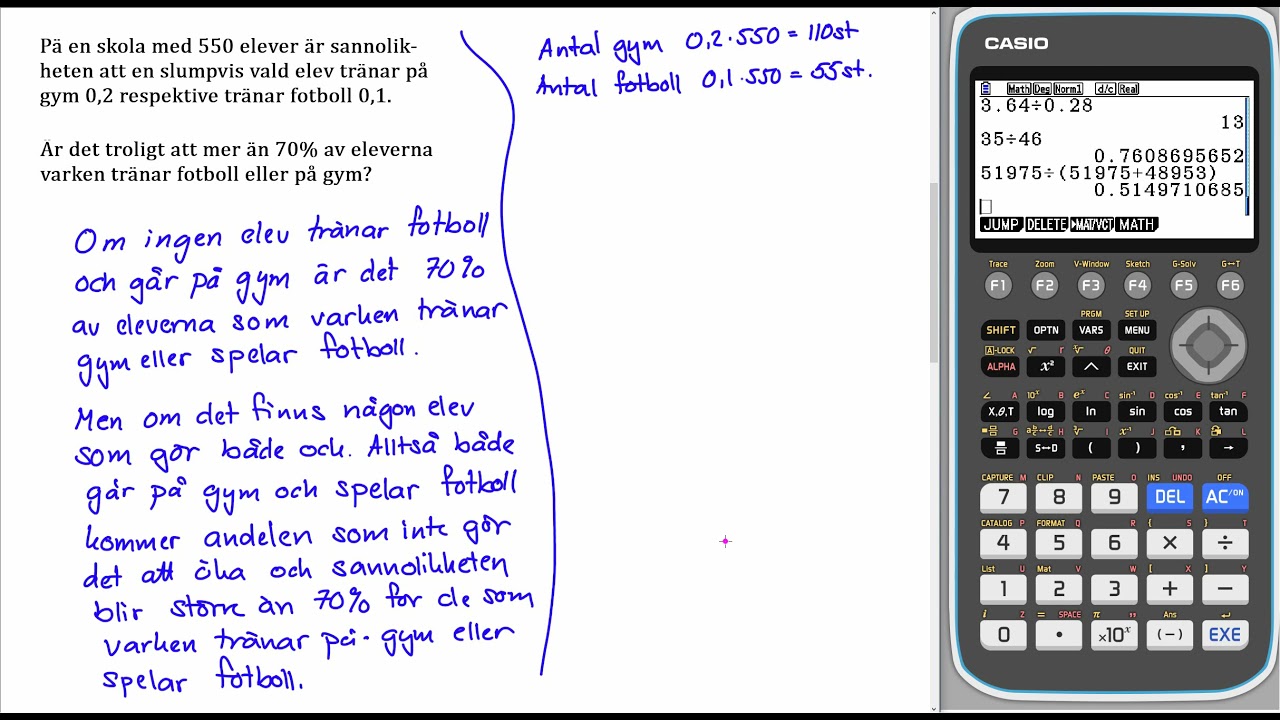 På en skola med 550 elever är sannolik-
heten att en slumpvis vald elev tränar på
gym 0,2 respektive tränar fotboll 0,1.
Är det troligt att mer än 70% av eleverna
varken tränar fotboll eller på gym?
Om ingen elev tränar fotboll
och går på gym är det 70%
av eleverna som varken tränar
gym eller spelar fotboll.
Men om det finns någon elev
som gör både och. Alltså både
går på gym och spelar fotboll
kommer andelen som inte gör
det att öka och sannolikheten
blir större än 70% för de som
varken tränar på gym eller
spelar fotboll.
Antal gym 0,2·550 = 110st
Antal fotboll 0,1·550 = 55st.
CASIO
Math Deg Norm1 d/c Real
3.64÷0.28
13
35÷46
0.7608695652
51975÷(51975+48953)
0.5149710685
JUMP DELETE ▶MAT/VCT MATH
Trace Zoom V-Window Sketch G-Solv G↔T
F1 F2 F3 F4 F5 F6
PRGM SET UP
SHIFT OPTN VARS MENU
A-LOCK √ r ∛ θ QUIT
ALPHA x² ^ EXIT
∠ A 10ˣ B eˣ C sin⁻¹ D cos⁻¹ E tan⁻¹ F
X,θ,T log ln sin cos tan
G H ∛ I x⁻¹ J K L
S↔D ( ) , →
CAPTURE M CLIP N PASTE O INS UNDO OFF
7 8 9 DEL AC/ON
CATALOG P FORMAT Q R { S } T
4 5 6 × ÷
List U Mat V W [ X ] Y
1 2 3 + −
i Z = SPACE π " Ans
0 • ×10ˣ (−) EXE